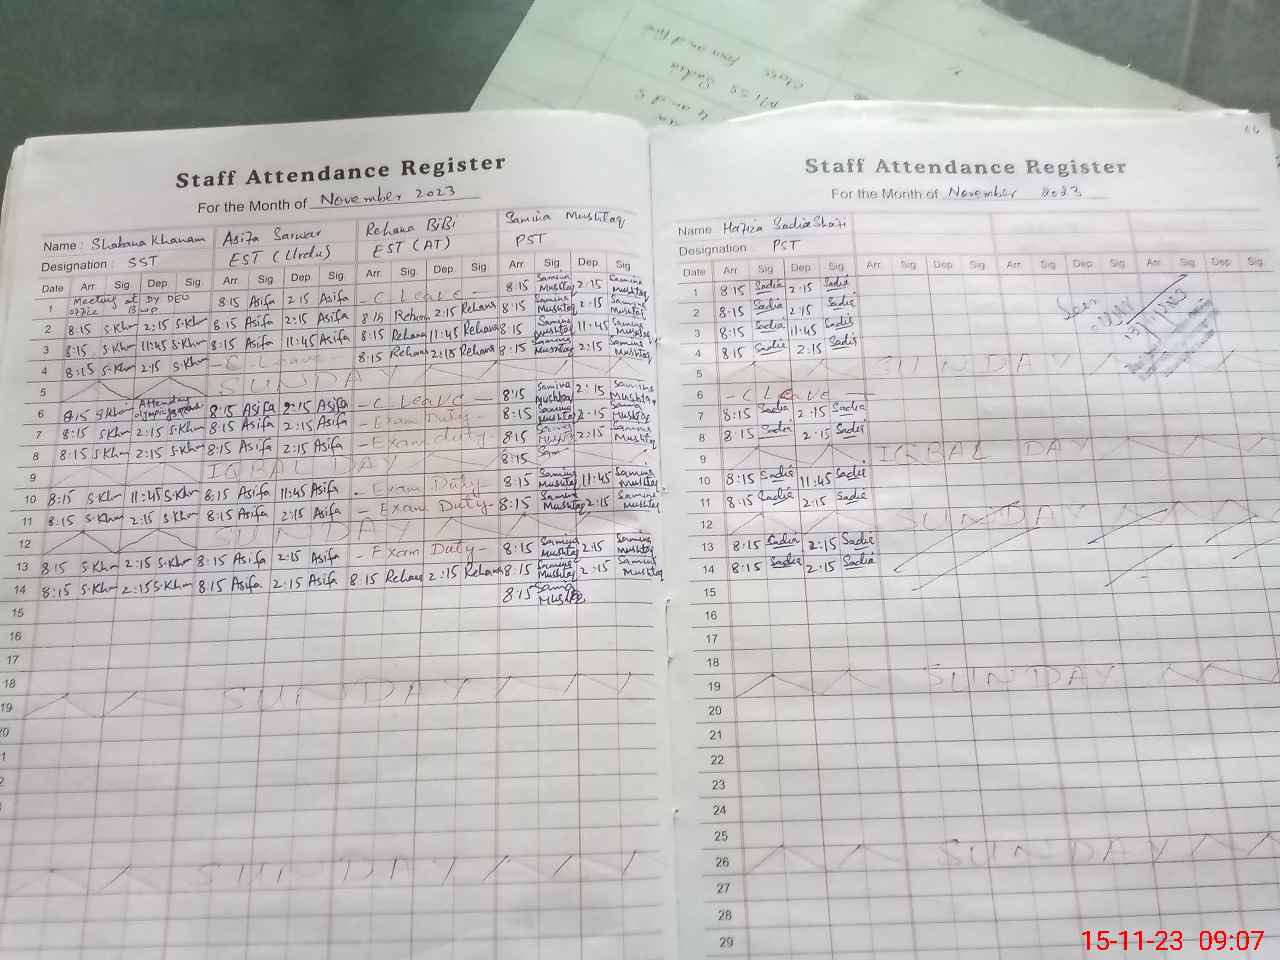 Class four and five
Miss Sadia
4 and 5
Staff Attendance Register
For the Month of November 2023
Name : Shabana Khanam Asifa Sarwar Rehana BiBi Samina Mushtaq
Designation : SST EST (Urdu) EST (AT) PST
Date Arr. Sig. Dep. Sig. Arr. Sig. Dep. Sig. Arr. Sig. Dep. Sig. Arr. Sig. Dep. Sig.
1 Meeting at DY DEO office Bwp 8:15 Asifa 2:15 Asifa - C Leave - 8:15 Samina Mushtaq 2:15 Samina Mushtaq
2 8:15 S.Khn 2:15 S.Khn 8:15 Asifa 2:15 Asifa 8:15 Rehana 2:15 Rehana 8:15 Samina Mushtaq 2:15 Samina Mushtaq
3 8:15 S.Khn 11:45 S.Khn 8:15 Asifa 11:45 Asifa 8:15 Rehana 11:45 Rehana 8:15 Samina Mushtaq 11:45 Samina Mushtaq
4 8:15 S.Khn 2:15 S.Khn - C Leave - 8:15 Rehana 2:15 Rehana 8:15 Samina Mushtaq 2:15 Samina Mushtaq
5 SUNDAY
6 8:15 S.Khn Attending 8:15 Asifa 2:15 Asifa - C Leave - 8:15 Samina Mushtaq 2:15 Samina Mushtaq
7 8:15 S.Khn 2:15 S.Khn 8:15 Asifa 2:15 Asifa - Exam Duty - 8:15 Samina Mushtaq 2:15 Samina Mushtaq
8 8:15 S.Khn 2:15 S.Khn 8:15 Asifa 2:15 Asifa - Exam duty - 8:15 Samina Mushtaq 2:15 Samina Mushtaq
9 IQBAL DAY 8:15 Sam
10 8:15 S.Khn 11:45 S.Khn 8:15 Asifa 11:45 Asifa - Exam Duty - 8:15 Samina Mushtaq 11:45 Samina Mushtaq
11 8:15 S.Khn 2:15 S.Khn 8:15 Asifa 2:15 Asifa - Exam Duty - 8:15 Samina Mushtaq 2:15 Samina Mushtaq
12 SUNDAY
13 8:15 S.Khn 2:15 S.Khn 8:15 Asifa 2:15 Asifa - Exam Duty - 8:15 Samina Mushtaq 2:15 Samina Mushtaq
14 8:15 S.Khn 2:15 S.Khn 8:15 Asifa 2:15 Asifa 8:15 Rehana 2:15 Rehana 8:15 Samina Mushtaq 2:15 Samina Mushtaq
15 8:15 Samina Mushtaq
16
17
18
19 SUNDAY
20
1
2
SUNDAY
Staff Attendance Register
For the Month of November 2023
Name : Hafiza Sadia Shafi
Designation : PST
Date Arr. Sig. Dep. Sig. Arr. Sig. Dep. Sig. Arr. Sig. Dep. Sig.
1 8:15 Sadia 2:15 Sadia
2 8:15 Sadia 2:15 Sadia
3 8:15 Sadia 11:45 Sadia
4 8:15 Sadia 2:15 Sadia
5 SUNDAY
6 - C Leave -
7 8:15 Sadia 2:15 Sadia
8 8:15 Sadia 2:15 Sadia
9 IQBAL DAY
10 8:15 Sadia 11:45 Sadia
11 8:15 Sadia 2:15 Sadia
12 SUNDAY
13 8:15 Sadia 2:15 Sadia
14 8:15 Sadia 2:15 Sadia
15
16
17
18
19 SUNDAY
20
21
22
23
24
25
26 SUNDAY
27
28
29
Seen
15-11-23 09:07